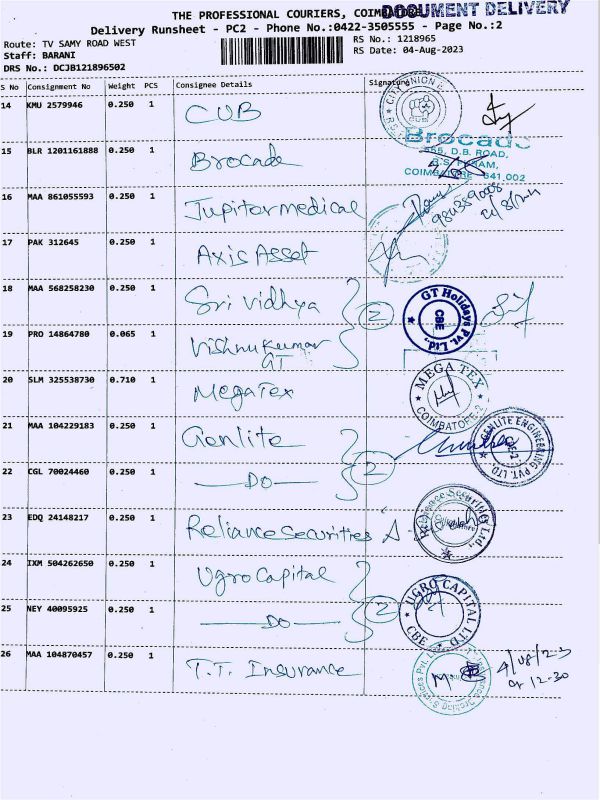 THE PROFESSIONAL COURIERS, COIMBATORE
DOCUMENT DELIVERY
Delivery Runsheet - PC2 - Phone No.:0422-3505555 - Page No.:2
Route: TV SAMY ROAD WEST
RS No.: 1218965
Staff: BARANI
RS Date: 04-Aug-2023
DRS No.: DCJB121896502
S No Consignment No Weight PCS Consignee Details Signature
14 KMU 2579946 0.250 1 CUB
CITY UNION
CUB
15 BLR 1201161888 0.250 1 Brocade
Brocade
D.B. ROAD,
R.S. PURAM,
COIMBATORE 641 002
16 MAA 861055593 0.250 1 Jupitormedical
17 PAK 312645 0.250 1 Axis Asset
18 MAA 568258230 0.250 1 Sri Vidhya
2
GT Holidays Pvt. Ltd.,
CBE
19 PRO 14864780 0.065 1 Vishnu Kumar
GT
20 SLM 325538730 0.710 1 MegaTex
MEGA TEX
COIMBATORE-2
21 MAA 104229183 0.250 1 Genlite
2
GENLITE ENGINEERING PVT. LTD.
22 CGL 70024460 0.250 1 —DO—
23 EDQ 24148217 0.250 1 Reliance Securities
Reliance Securities Ltd.,
24 IXM 504262650 0.250 1 Ugro Capital
2
UGRO CAPITAL LTD
CBE
25 NEY 40095925 0.250 1 —DO—
26 MAA 104870457 0.250 1 T.T. Insurance
4/08/23
12-30